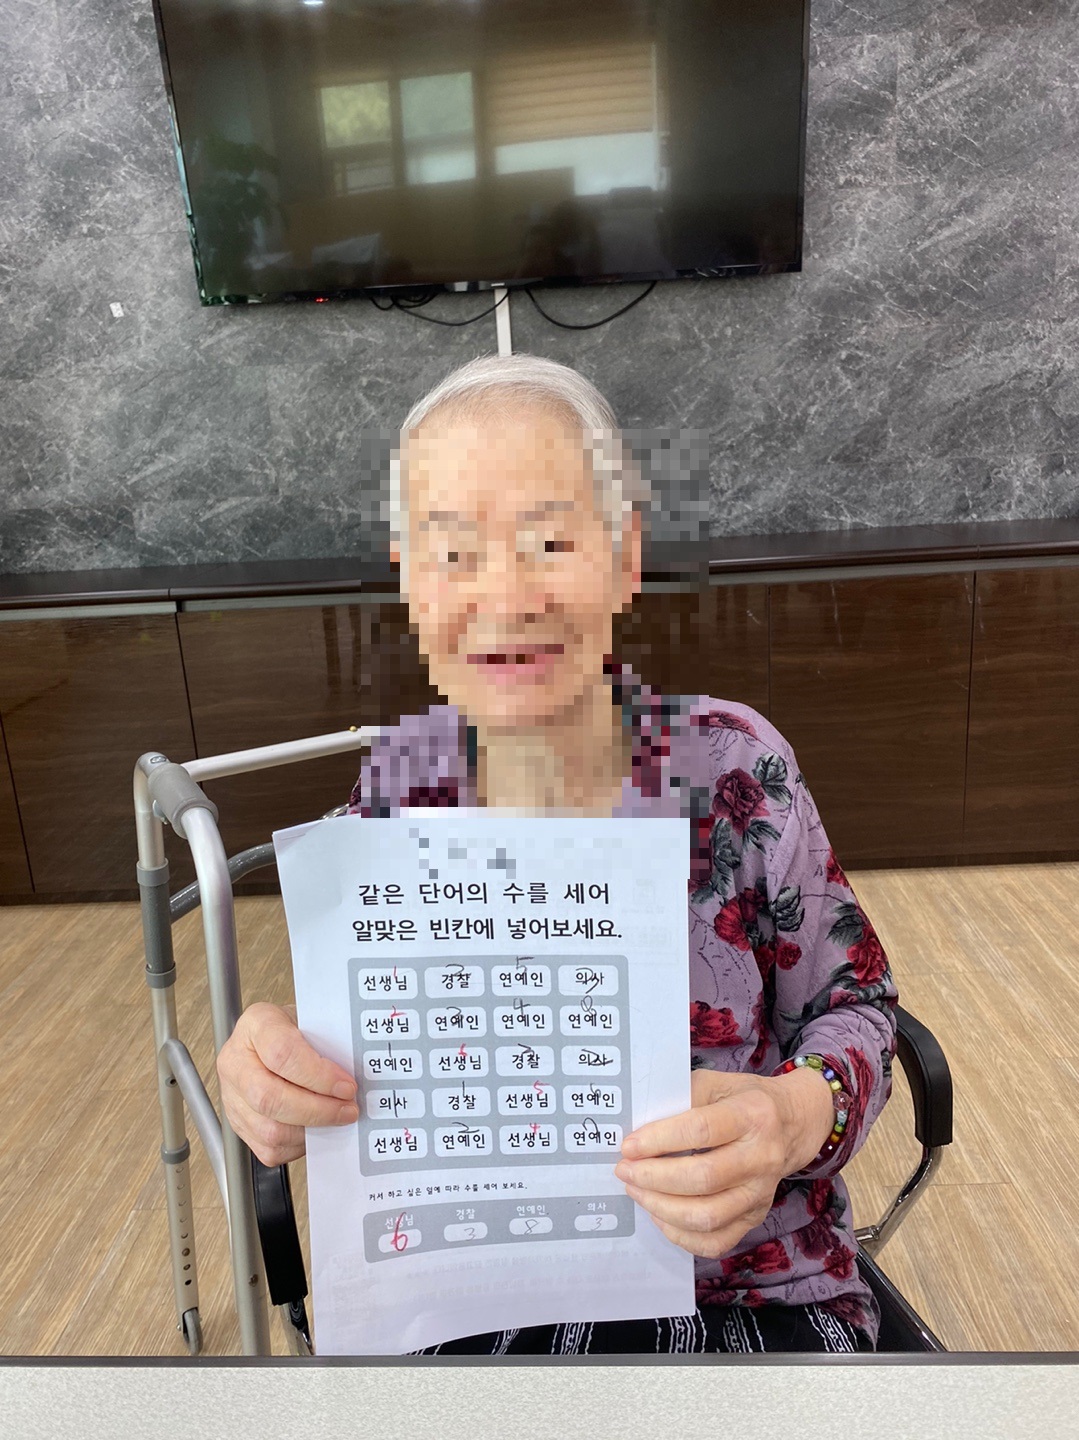 같은 단어의 수를 세어
알맞은 빈칸에 넣어보세요.
선생님 1 경찰 3 연예인 5 의사 3
선생님 2 연예인 3 연예인 4 연예인 8
연예인 1 선생님 6 경찰 2 의사 2
의사 1 경찰 1 선생님 5 연예인 6
선생님 3 연예인 2 선생님 4 연예인 7
커서 하고 싶은 일에 따라 수를 세어 보세요.
선생님 경찰 연예인 의사
6 3 8 3